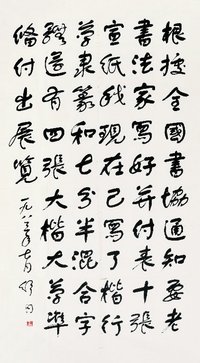 根據全國書協通知要老
書法家寫好并付来十張
宣紙我現在已寫了楷行
草隸篆和七分半混合字
體還有四張大楷大草準
備付出展覽
一九八三年七月 舒同